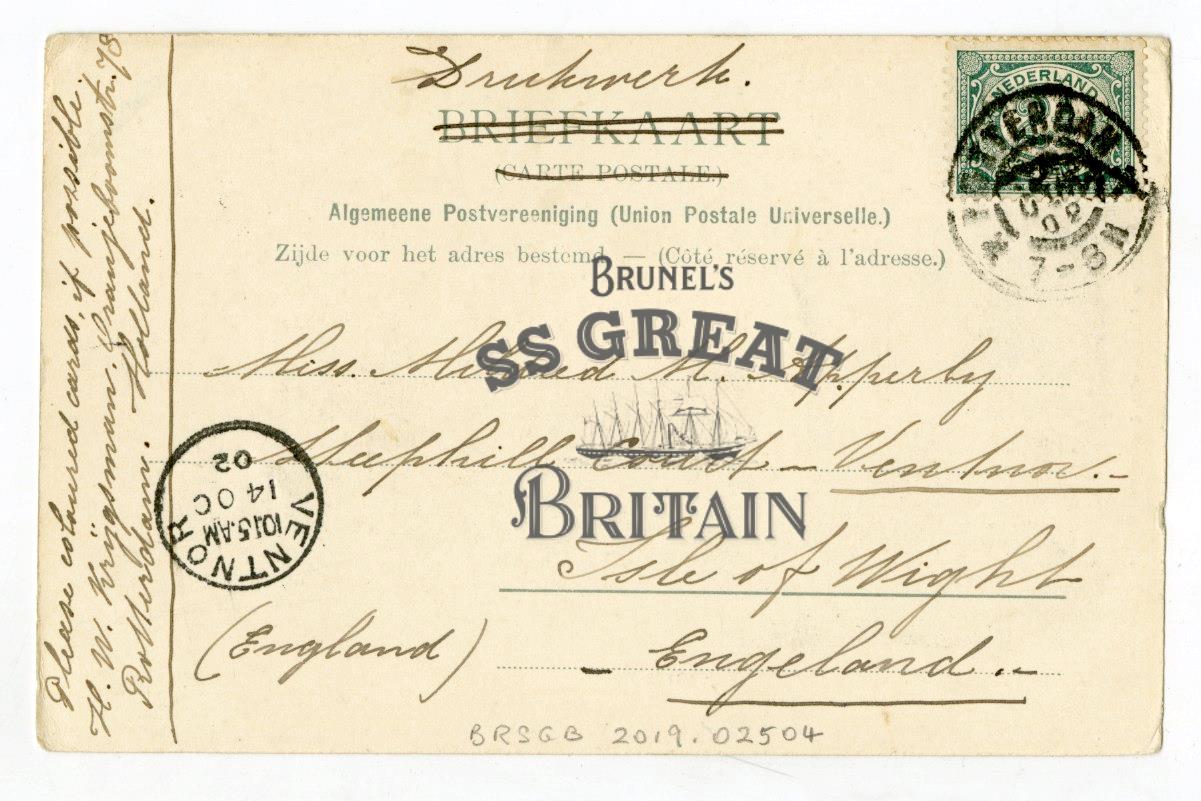 Drukwerk.
BRIEFKAART
(CARTE POSTALE.)
Algemeene Postvereeniging (Union Postale Universelle.)
Zijde voor het adres bestemd. — (Côté réservé à l'adresse.)
NEDERLAND
ROTTERDAM
7-8N
BRUNEL'S
SS GREAT
BRITAIN
Miss. Mildred M. Apperly
Steephill Court – Ventnor.–
Isle of Wight
(England)
– Engeland.–
VENTNOR
10.15.AM
14 OC
02
Please coloured cards, if possible.
H. W. Krijgsman. Oranjeboomstr. 78
Rotterdam. Holland.
BRSGB 2019.02504